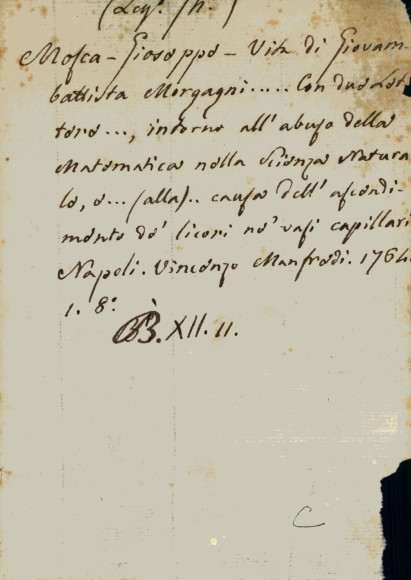 (Leg. In. )
Mosca - Gioseppe - Vita di Giovam-
battista Morgagni..... Con due Let-
tere..., intorno all' abuso della
Matematica nella Scienza Natura
le, e... (alla).. causa dell' ascendi-
mento de' licori ne' vasi capillari
Napoli. Vincenzo Manfredi. 1764.
1. 8.º
B. XII. 11.
C